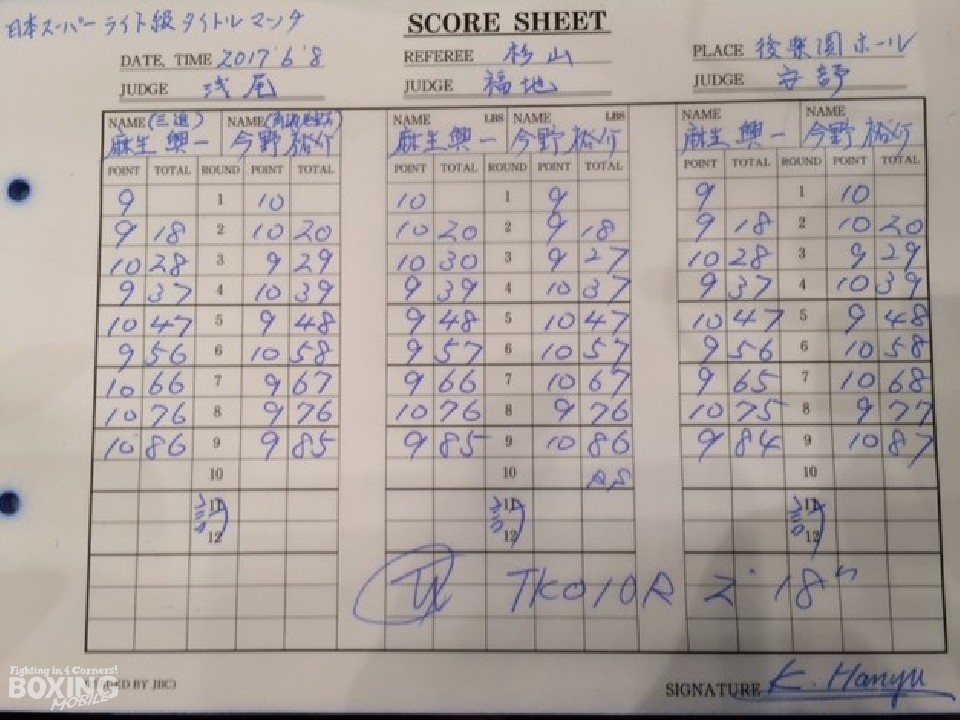 日本スーパーライト級タイトルマッチ
SCORE SHEET
DATE, TIME 2017'6'8 REFEREE 杉山 PLACE 後楽園ホール
JUDGE 浅尾 JUDGE 福地 JUDGE 安部
NAME (三迫) NAME NAME LBS NAME LBS NAME NAME
麻生興一 今野裕介 麻生興一 今野裕介 麻生興一 今野裕介
POINT TOTAL ROUND POINT TOTAL POINT TOTAL ROUND POINT TOTAL POINT TOTAL ROUND POINT TOTAL
9 1 10 10 1 9 9 1 10
9 18 2 10 20 10 20 2 9 18 9 18 2 10 20
10 28 3 9 29 10 30 3 9 27 10 28 3 9 29
9 37 4 10 39 9 39 4 10 37 9 37 4 10 39
10 47 5 9 48 9 48 5 10 47 10 47 5 9 48
9 56 6 10 58 9 57 6 10 57 9 56 6 10 58
10 66 7 9 67 9 66 7 10 67 9 65 7 10 68
10 76 8 9 76 10 76 8 9 76 10 75 8 9 77
10 86 9 9 85 9 85 9 10 86 9 84 9 10 87
10 10 10
11 11 11
12 12 12
TKO10R 2'18"
Fighting in 4 Corners!
BOXING MOBILE
BY JBC)
SIGNATURE K. Hanyu